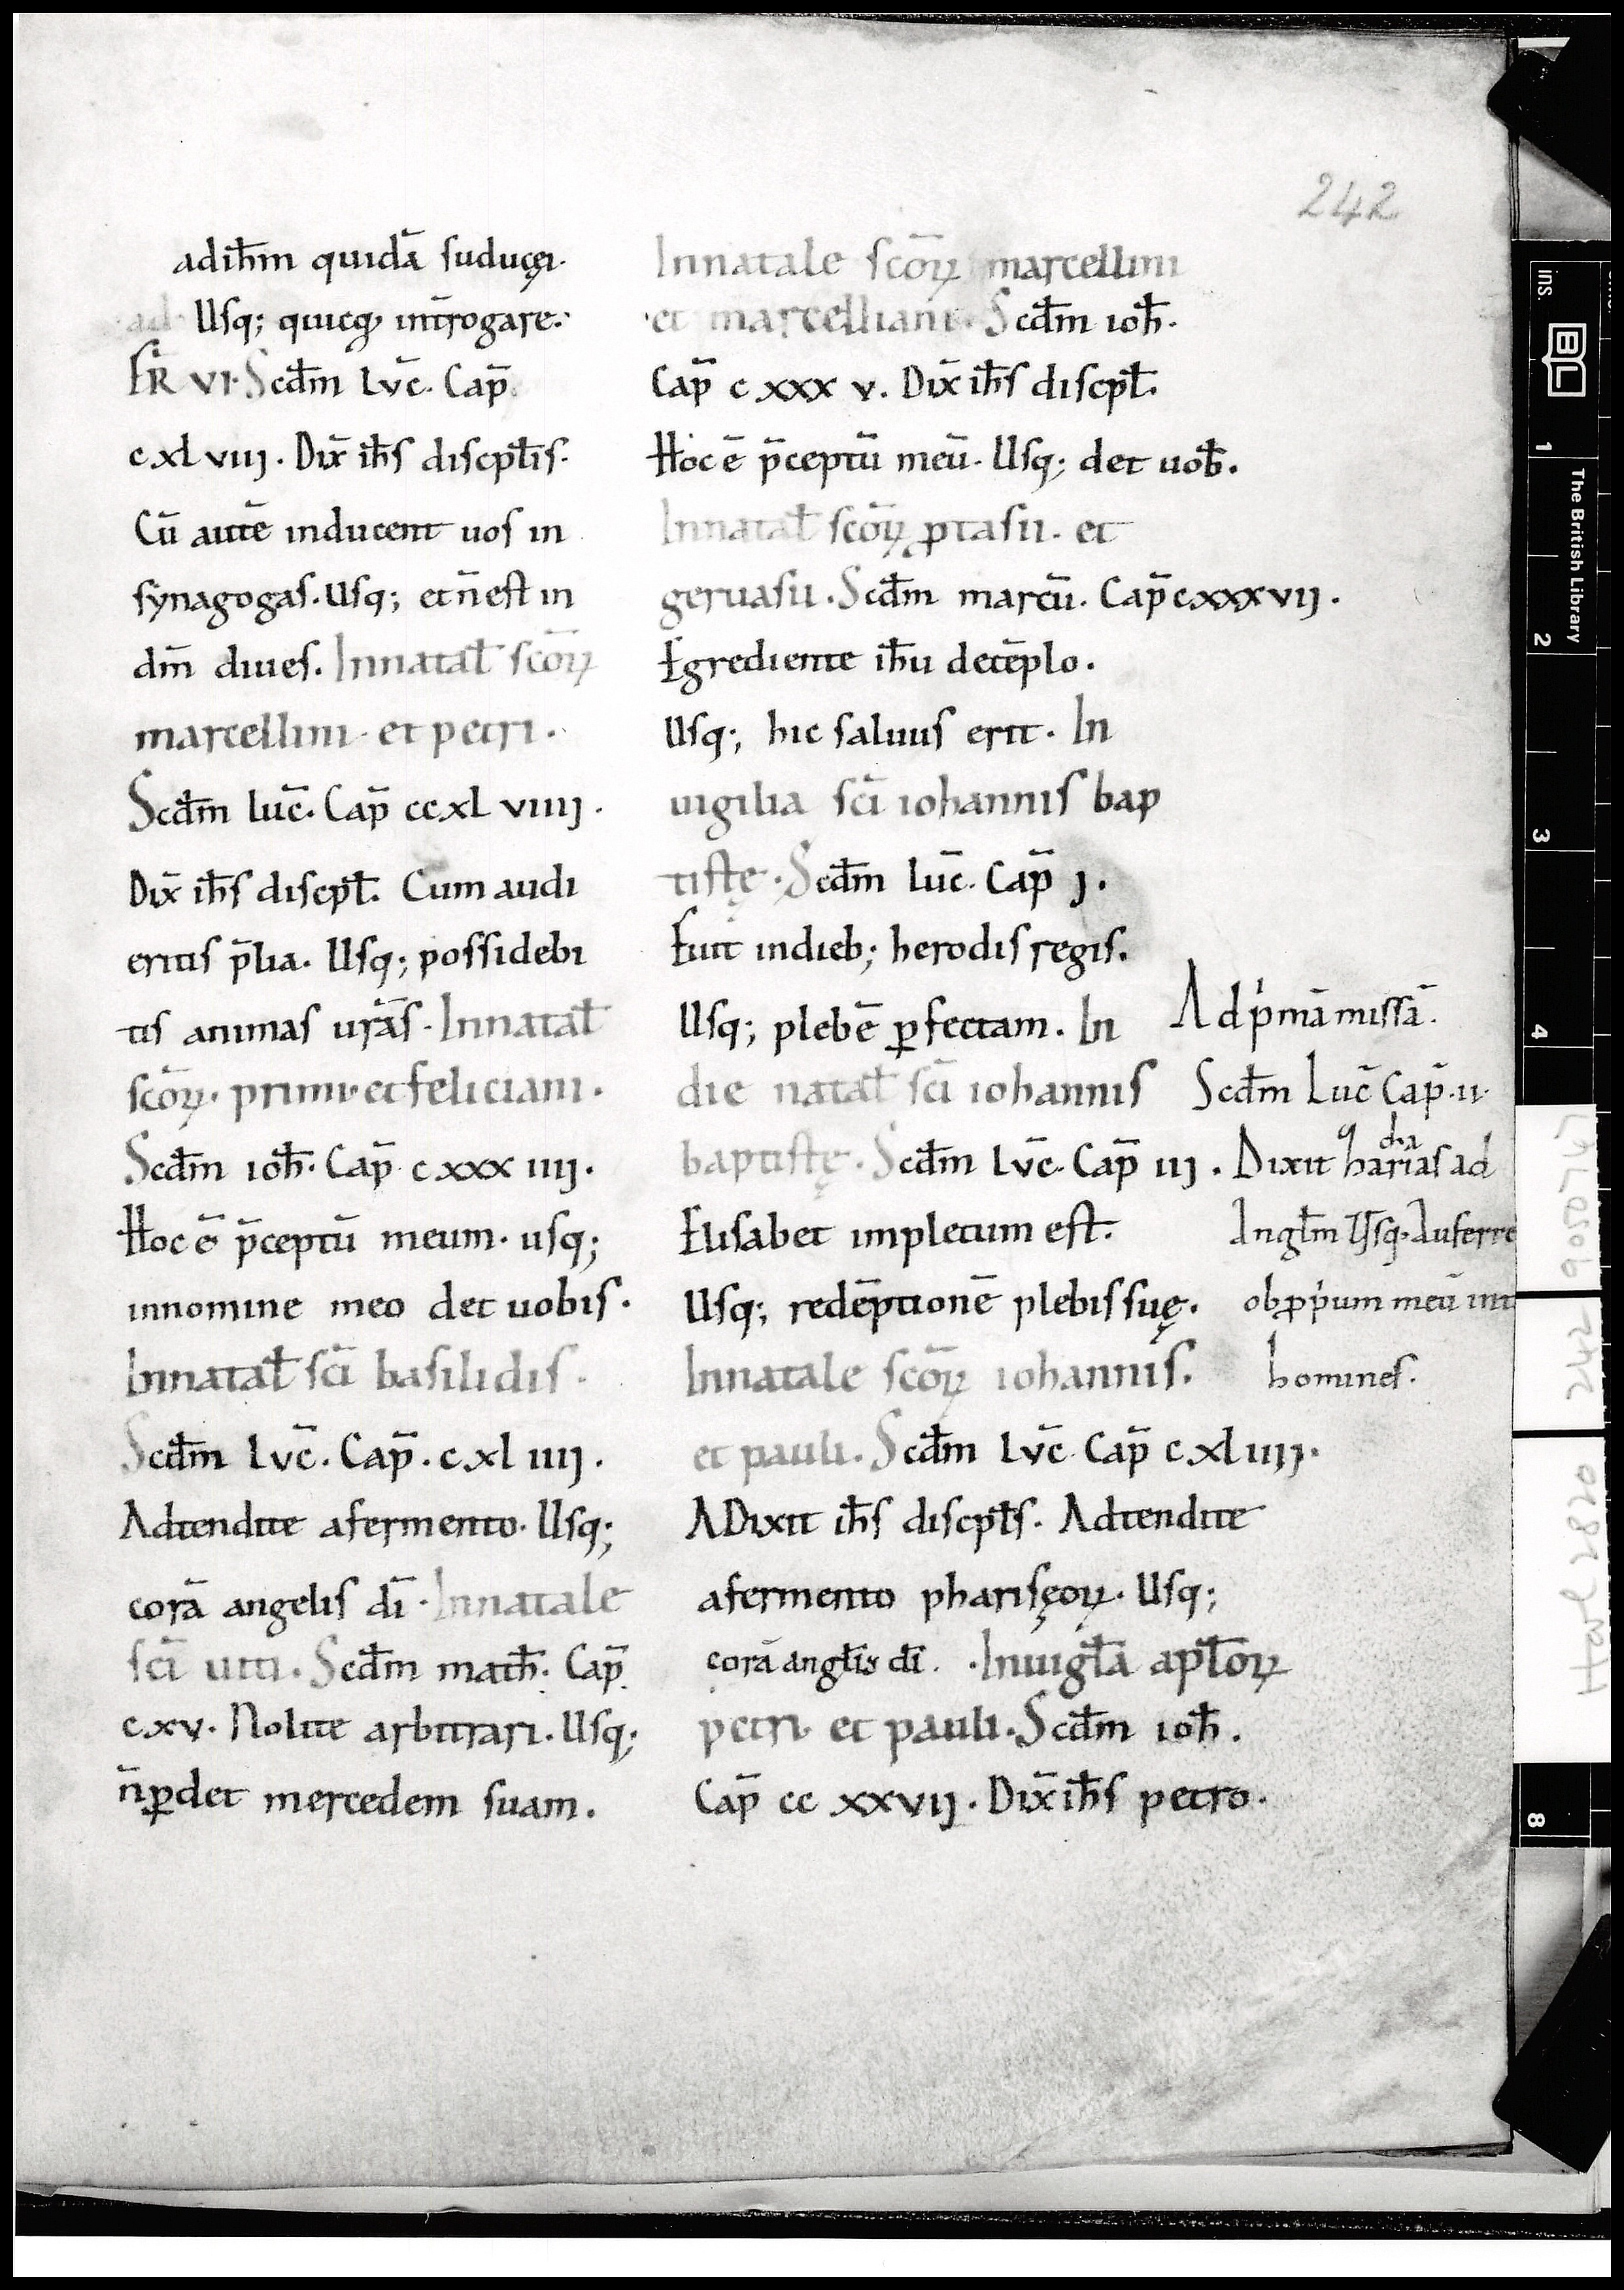 242
adih̄m quidā saducęi·
ad Usq; quicq̨ int̄rogare·
FR̄ VI· Scdm̄ Lvc̄· Cap̄
c xl viij · Dix̄ ih̄s discipl̄is·
Cū autē inducent uos in
synagogas· Usq; et n̄ est in
dm̄ diues. Innatal̄ scōꝝ
marcellini· et petri·
Scdm̄ luc̄· Cap̄ ccxl viiij ·
Dix̄ ih̄s discipl̄. Cum audi
eritis p̄lia· Usq; possidebi
tis animas ur̄as· Innatal̄
scōꝝ· primi· et feliciani·
Scdm̄ ioh̄· Cap̄ c xxx iiij·
Hoc ē p̄ceptū meum· usq;
innomine meo det uobis·
Innatal̄ sc̄i basilidis·
Scdm̄ Lvc̄· Cap̄· c xl iiij ·
Adtendite afermento· Usq;
corā angelis dī· Innatale
sc̄i uiti· Scdm̄ math̄· Cap̄
c xv· Nolite arbitrari· Usq;
n̄ ꝑdet mercedem suam·
Innatale scōꝝ marcellini
et marcelliani· Scdm̄ ioh̄·
Cap̄ c xxx v· Dix̄ ih̄s discipl̄·
Hoc ē p̄ceptū meū· Usq; det uob̄·
Innatal̄ scōꝝ ꝓtasii· et
geruasii· Scdm̄ marcū· Cap̄ cxxxvij ·
Egrediente ih̄u detēplo·
Usq; hic saluus erit· In
uigilia sc̄i iohannis bap
tistę· Scdm̄ luc̄· Cap̄ j·
Fuit indieb; herodis regis·
Usq; plebē ꝑfectam· In
die natal̄ sc̄i iohannis
baptistę· Scdm̄ Lvc̄· Cap̄ iij ·
Elisabet impletum est·
Usq; redēptionē plebis suę·
Innatale scōꝝ iohannis·
et pauli· Scdm̄ Lvc̄· Cap̄ c xl iiij·
ADixit ih̄s discipl̄s· Adtendite
afermento pharisęoꝝ· Usq;
corā angl̄is dī· Inuigl̄a apl̄oꝝ
petri· et pauli· Scdm̄ ioh̄·
Cap̄ cc xxvij · Dix̄ ih̄s petro·
Ad p'mā missā·
Scdm̄ Luc̄ Cap̄· ii·
Dixit harias ad
cha
Angl̄m Usq· Auferre
obꝓp'um meū int
homines·
ins.
BL
The British Library
1
2
3
4
8